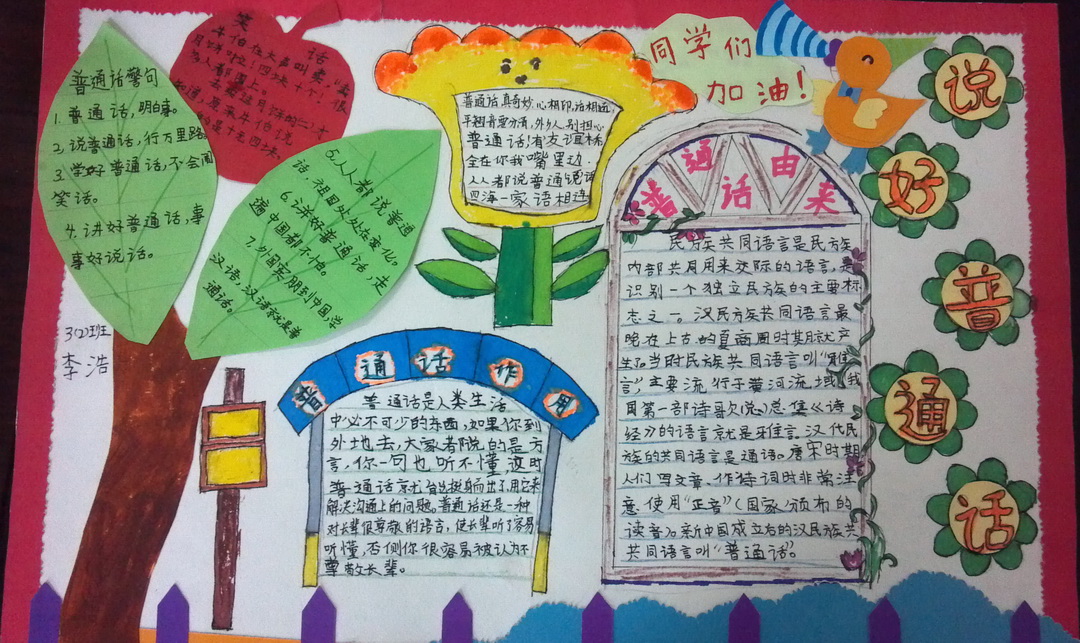 普通话警句
1.普通话,明白事。
2.说普通话,行万里路。
3.学好普通话,不会闹
笑话。
4.讲好普通话,事
事好说话。
笑话
5.人人都说普通
话,祖国处处在变化。
6.讲好普通话,走
遍中国都不怕。
7.外国宾朋到中国,学
汉语,汉语就是普
通话。
3(2)班
李浩
普通话真奇妙,心相印,话相通,
平翘音要分清,外乡人别担心
普通话,有友谊桥
全在你我嘴里边.
人人都说普通话
四海一家语相连
同学们
加油!
普通话作用
普通话是人类生活
中必不可少的东西,如果你到
外地去,大家都说的是方
言,你一句也听不懂,这时
普通话就会挺身而出了,用它来
解决沟通上的问题。普通话还是一种
对长辈很尊敬的语言,使长辈听了容易
听懂,否则你很容易被认为不
尊敬长辈。
普通话由来
民族共同语言是民族
内部共同用来交际的语言,是
识别一个独立民族的主要标
志之一。汉民族共同语言最
晚在上古的夏商周时期就产
生了,当时民族共同语言叫“雅
言”,主要流行于黄河流域,我
国第一部诗歌总集《诗
经》的语言就是雅言。汉代民
族的共同语言是通语。唐宋时期
人们写文章、作诗词时非常注
意使用“正音”(国家)颁布的
读音)。新中国成立后的汉民族共
共同语言叫“普通话”。
说
好
普
通
话